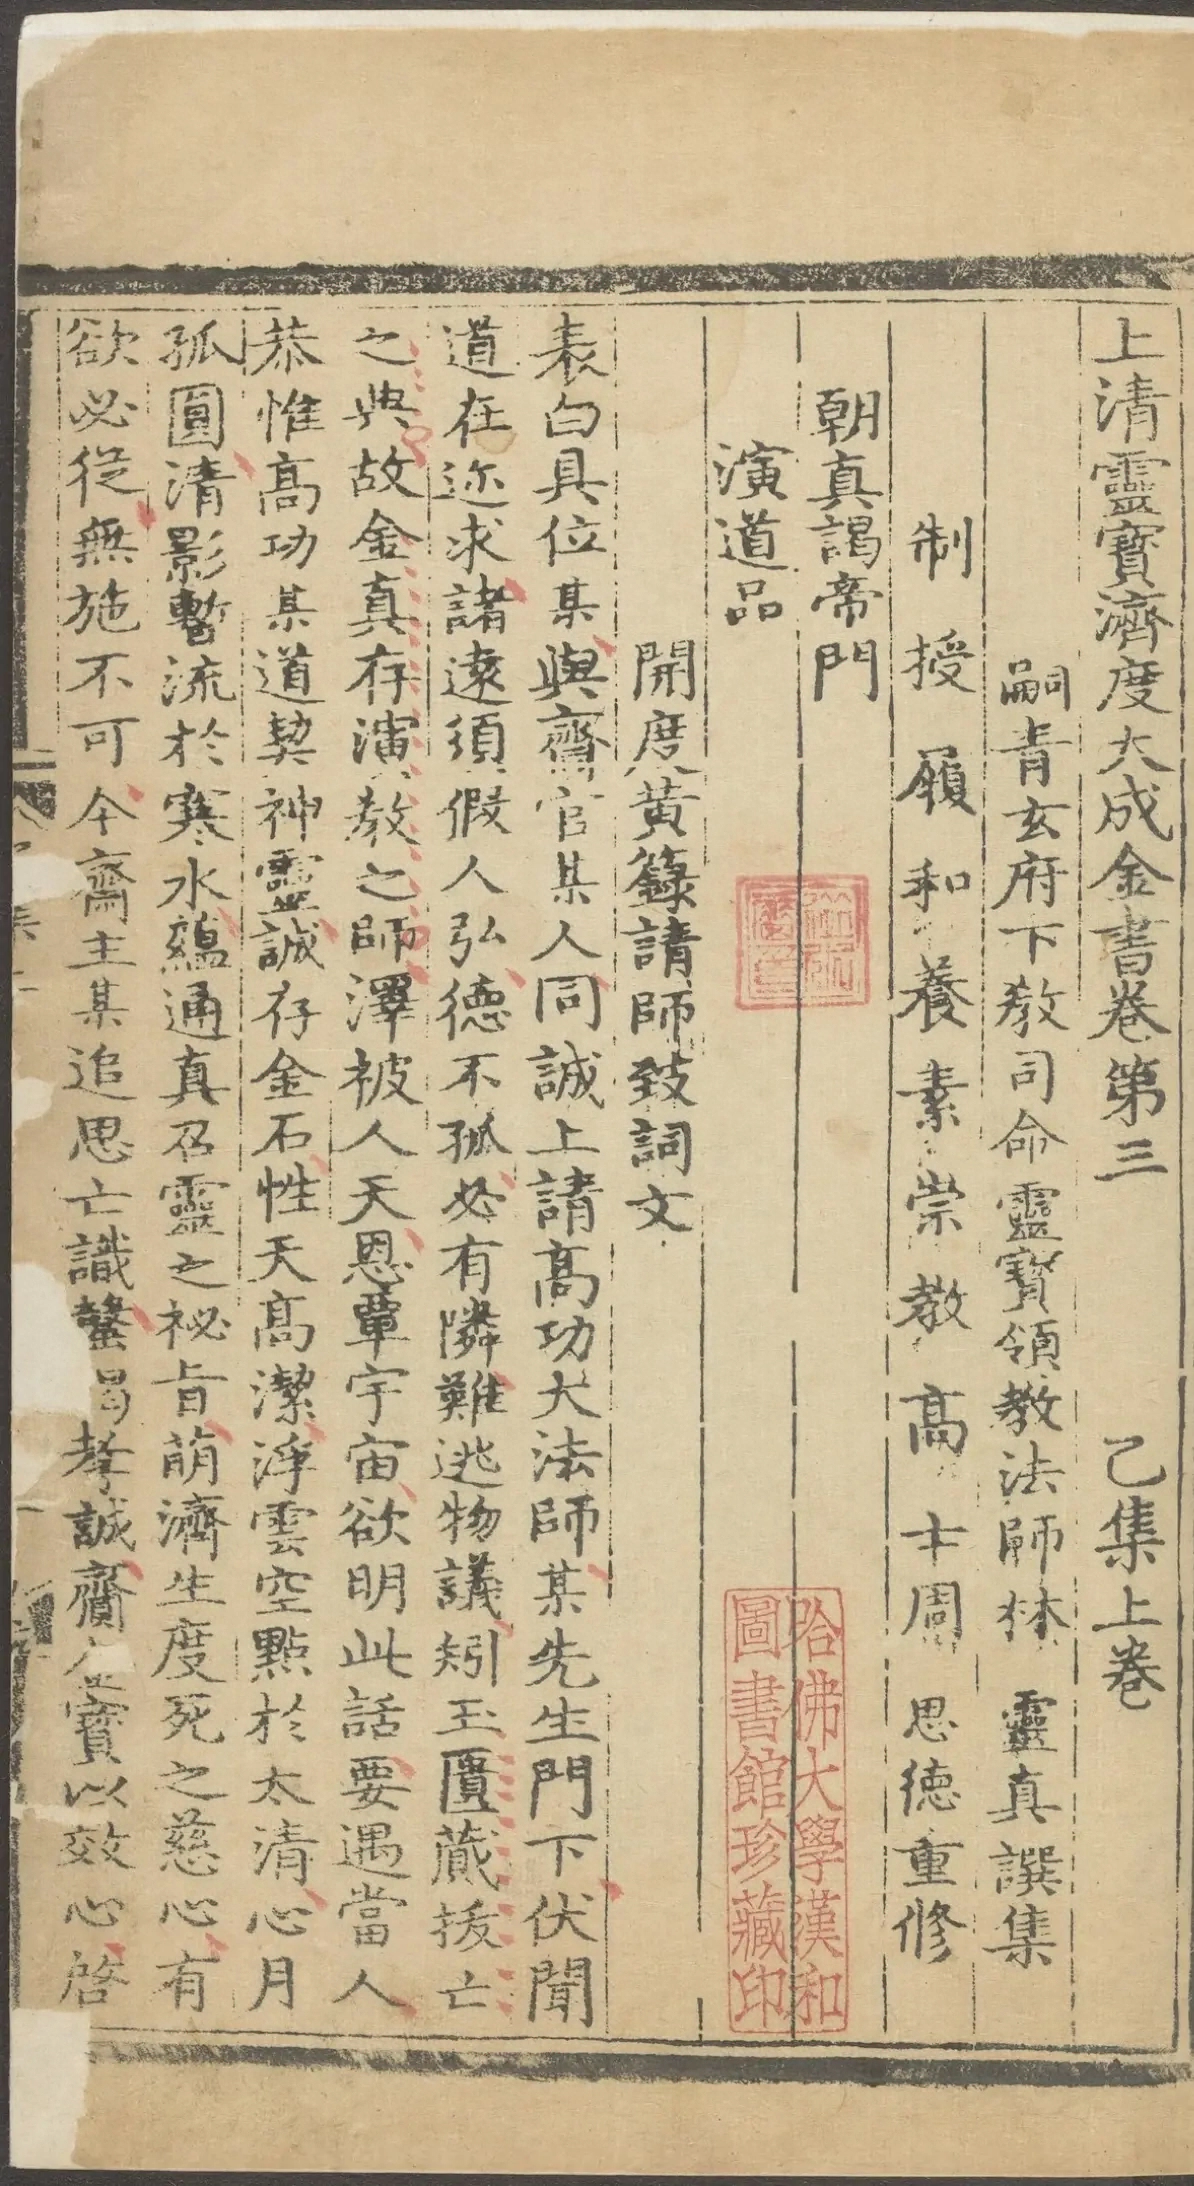 上清靈寶濟度大成金書卷第三 乙集上卷
嗣青玄府下教司命靈寶領教法師林 靈真譔集
制授履和養素崇教高士周 思德重修
朝真謁帝門
演道品
開度黃籙請師致詞文
表白具位某與齋官某人同誠上請高功大法師某先生門下伏聞
道在迩求諸遠須假人弘德不孤必有隣難逃物議矧玉匱蕆拔亡
之典故金真存演教之師澤被人天恩覃宇宙欲明此話要遇當人
恭惟高功某道契神靈誠存金石性天高潔淨雲空點於太清心月
孤圓清影暫流於寒水蘊通真召靈之祕旨萌濟生度死之慈心有
欲必從無施不可今齋主某追思亡識螫曷孝誠齎寶以效心啓
哈佛大學漢和
圖書館珍藏印